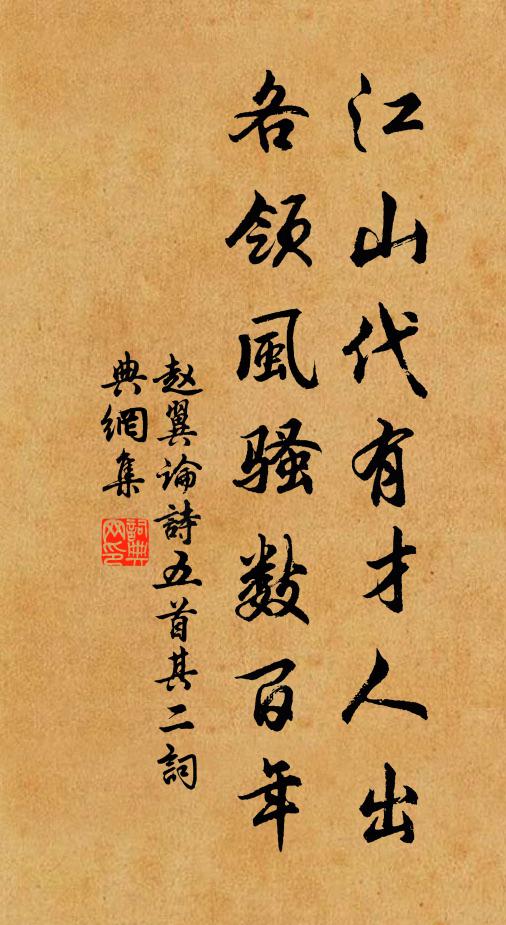 江山代有才人出
各领風骚数百年
赵翼论詩五首其二詞
典網集
詞典
网印